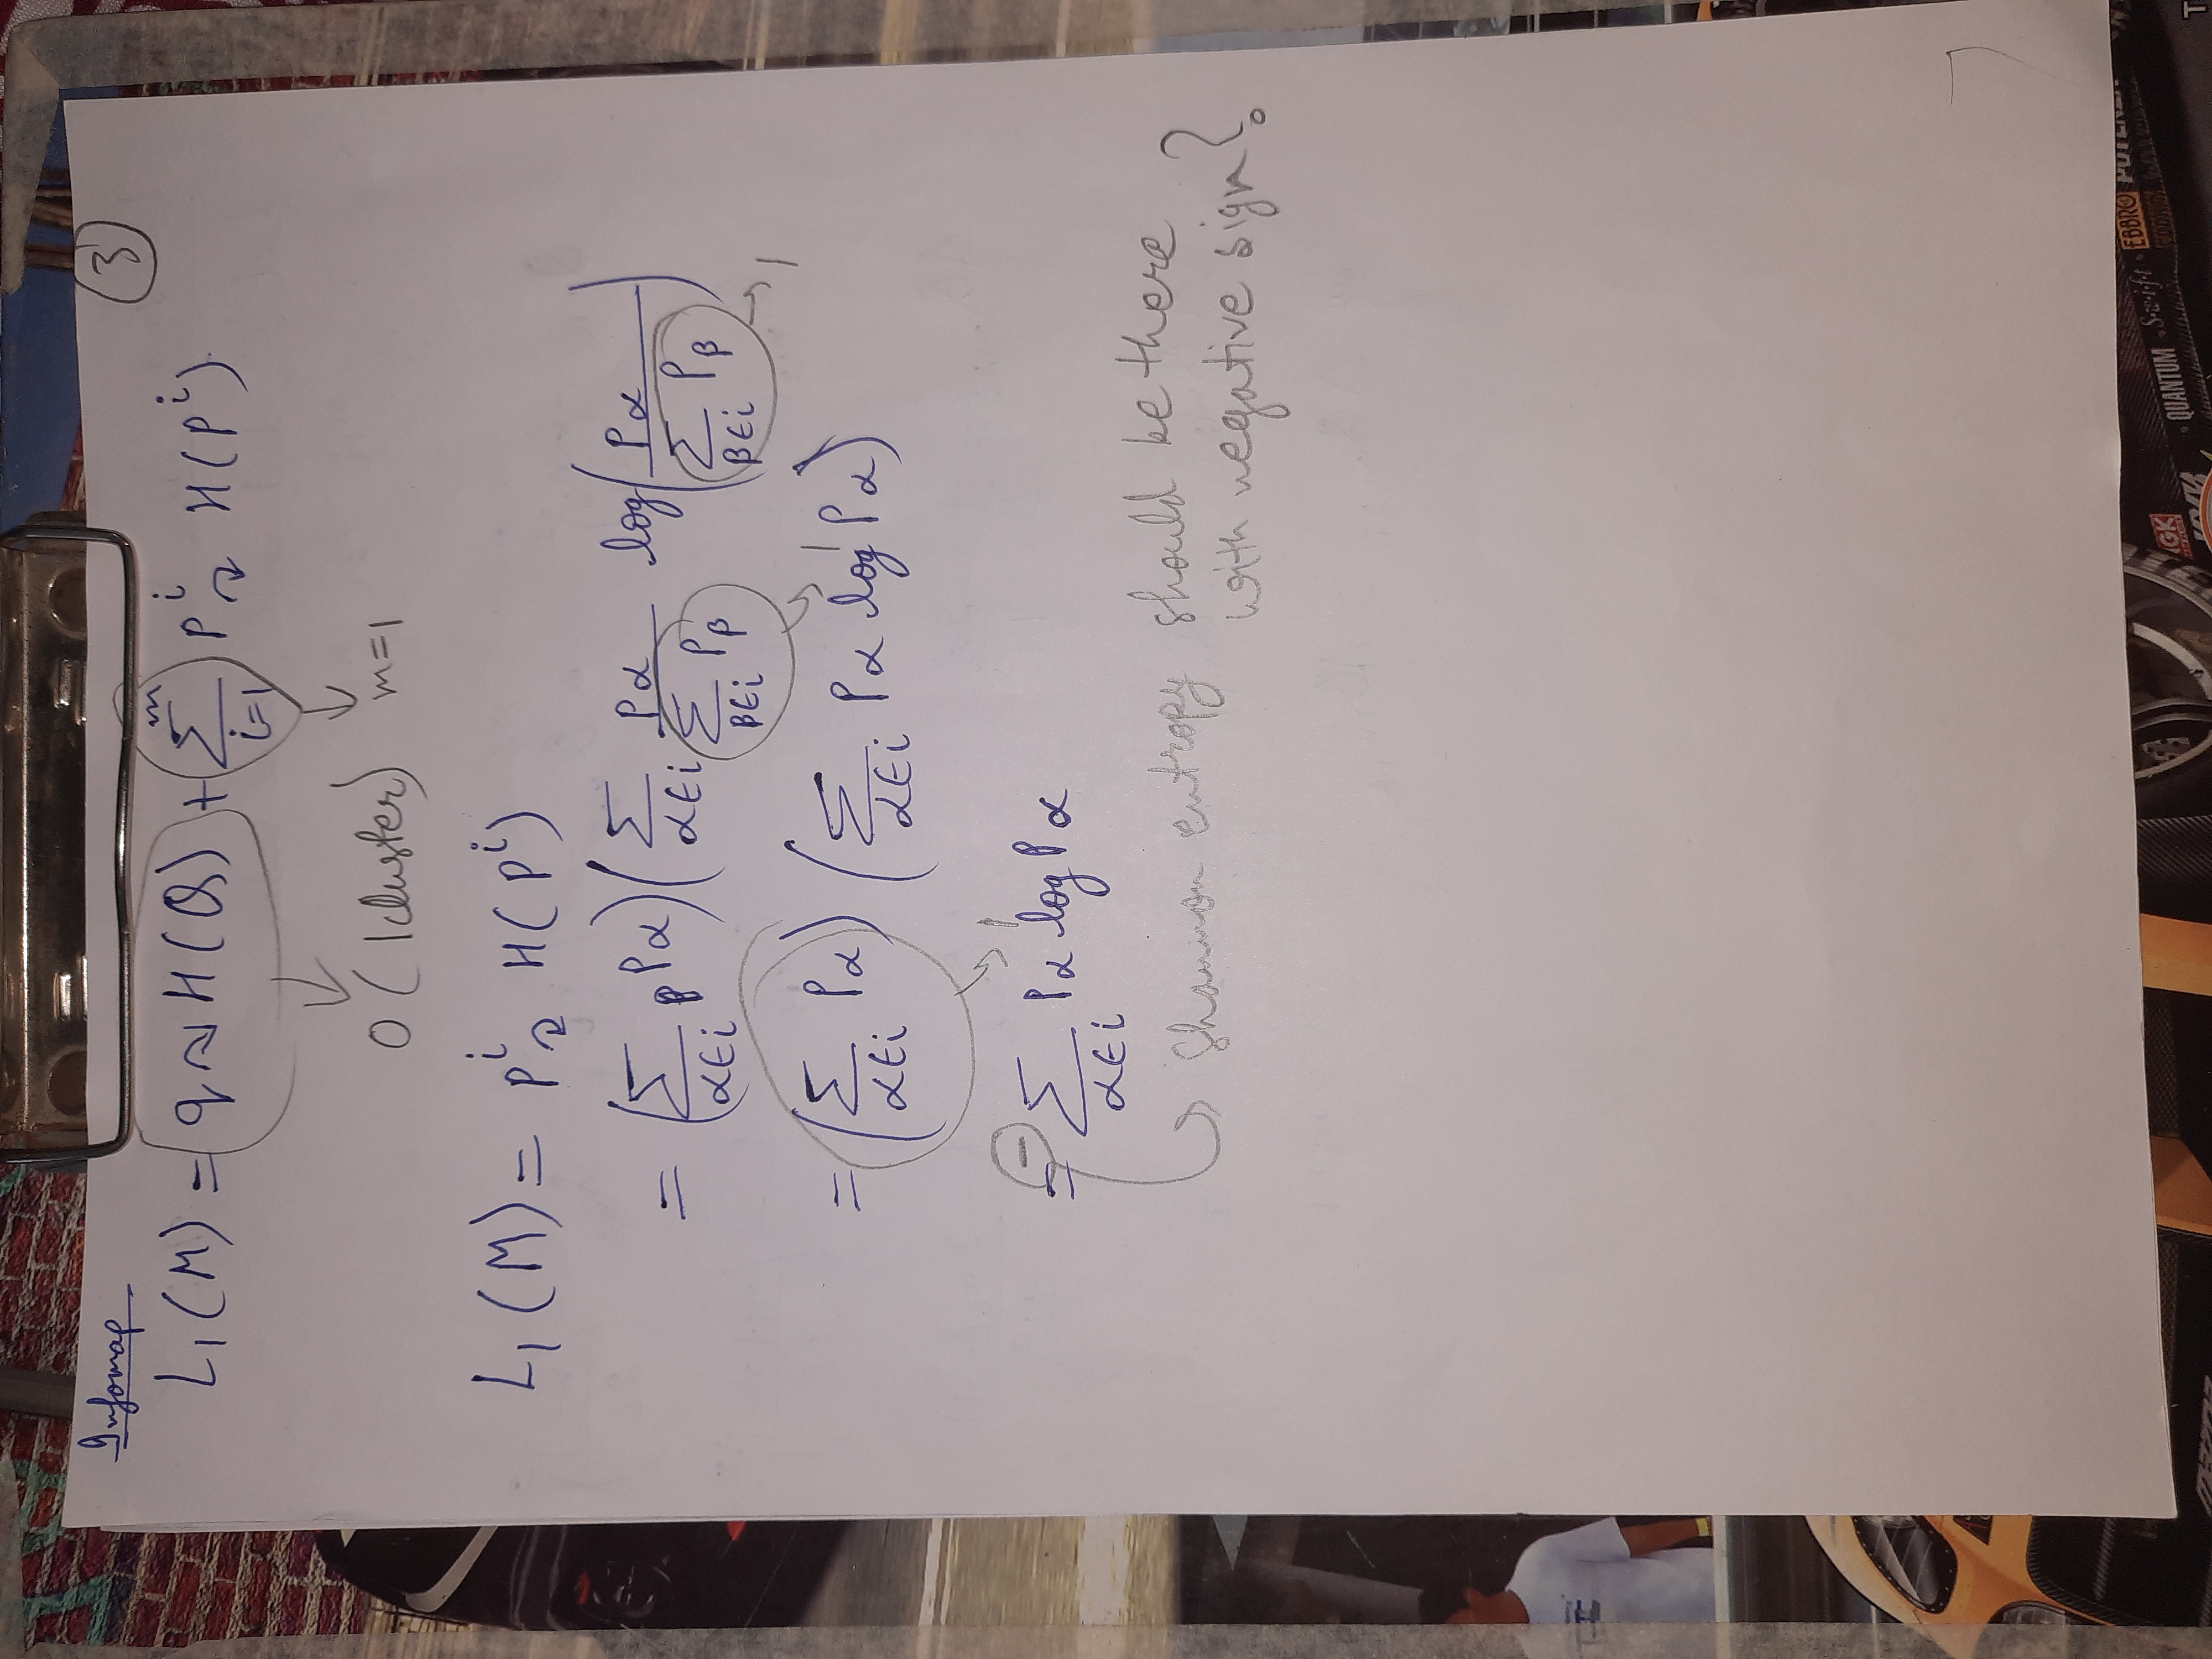 Infomap
3
L₁(M) = q↷ H(Q) + Σ_{i=1}^{m} p^i_↻ H(p^i).
0 (1 cluster) m=1
L₁(M) = p^i_↻ H(p^i)
= (Σ_{α∈i} pα) (Σ_{α∈i} pα / Σ_{β∈i} pβ log(pα / Σ_{β∈i} pβ)
→ 1 → 1
= (Σ_{α∈i} pα) (Σ_{α∈i} pα log pα)
→ 1
= − Σ_{α∈i} pα log pα
Shannon entropy should be there
with negative sign?
QUANTUM
Swift
EBBRO
NGK
MAZDA